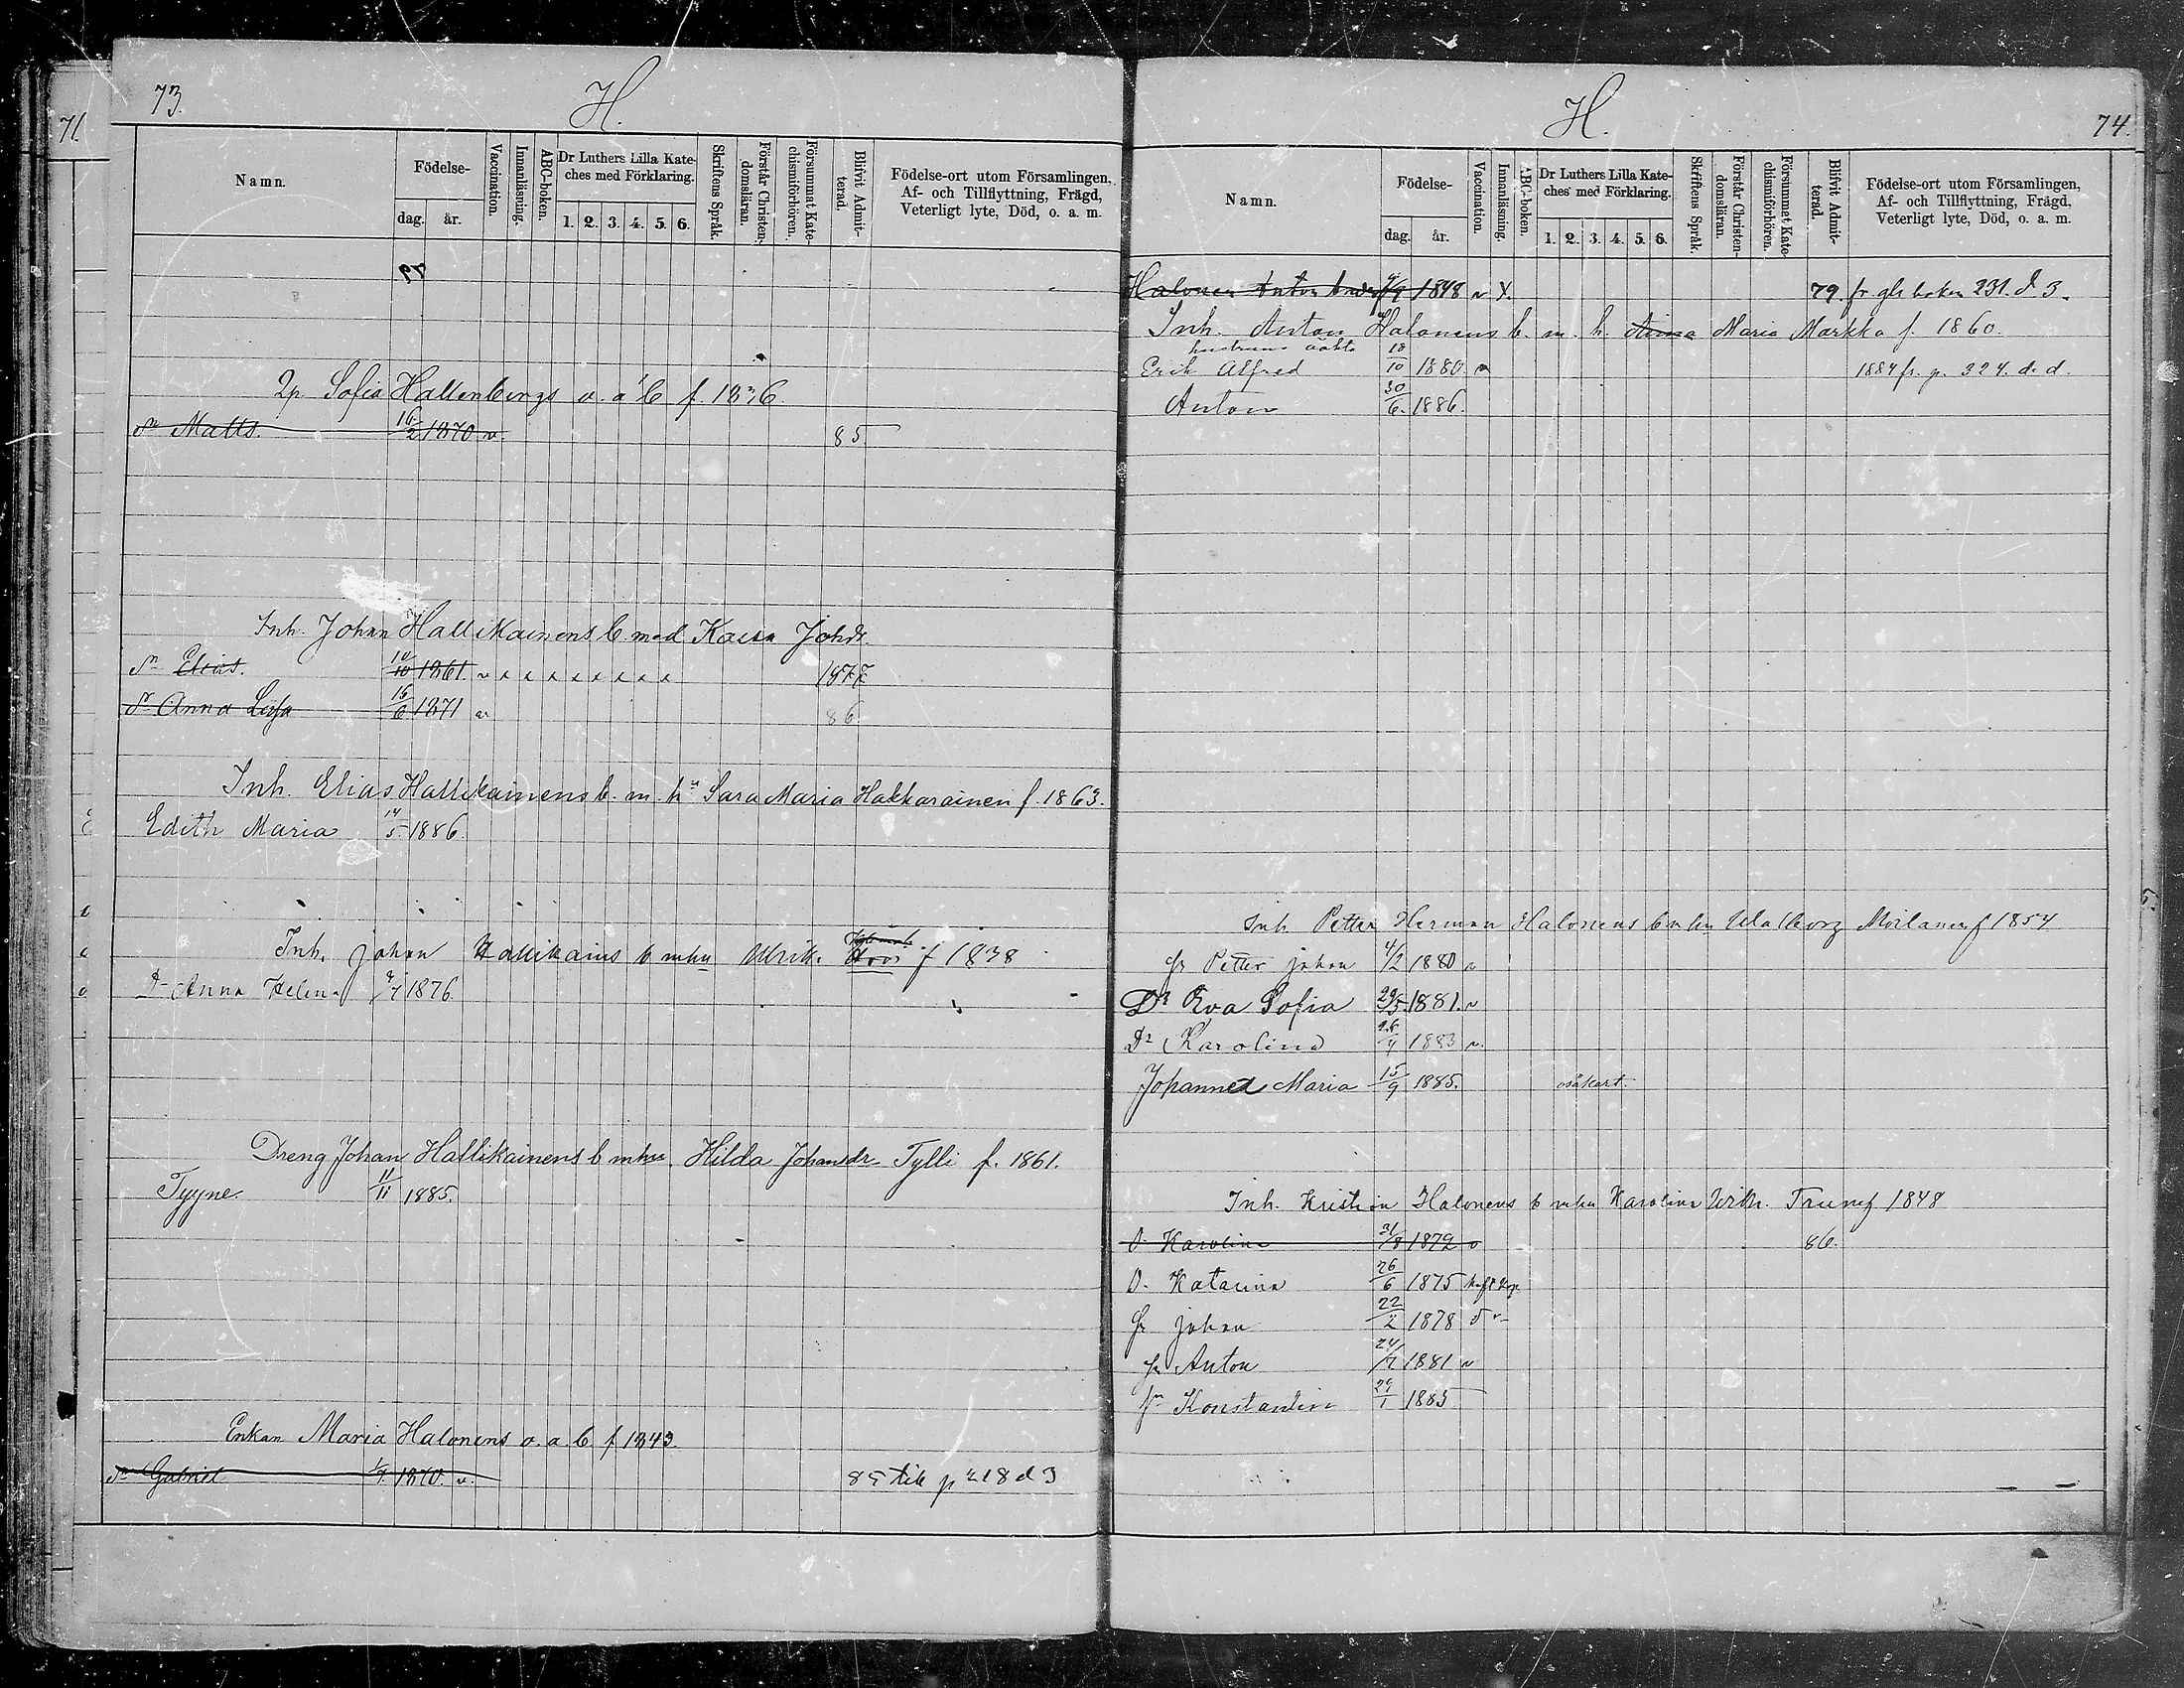 71.
73.
H.
Namn.
Födelse-
dag. år.
Vaccination.
Innanläsning.
ABC-boken.
Dr Luthers Lilla Kate-
ches med Förklaring.
1. 2. 3. 4. 5. 6.
Skriftens Språk.
Förstår Christen-
domsläran.
Försummat Kate-
chismiförhören.
Blifvit Admit-
terad.
Födelse-ort utom Församlingen,
Af- och Tillflyttning, Frägd,
Veterligt lyte, Död, o. a. m.
79
Qp. Sofia Hallenbergs o. ä. b f. 1836.
Sn Matts. 16/2 1870 v. 85
Inh. Johan Hallikainens b med Kaisa Johdr.
Sn Elias. 10/10 1861. v x x x x x x x x 1877
Dr Anna Lisa 16/6 1871 v 86.
Inh. Elias Hallikainens b. m. hu Sara Maria Hakkarainen f. 1863.
Edith Maria 14/5 1886.
Inh. Johan Hallikains b mhu Ulrik. f 1838
D Anna Helena 9/7 1876
Dreng Johan Hallikainens b mhu. Hilda Johansdr Tylli f. 1861.
Tyyne. 11/11 1885.
Enkan Maria Halonens o. a. b f 1843.
Sn Gabriel 1/7 1870. v. 85 till p 218 d 3
H.
74.
Namn.
Födelse-
dag. år.
Vaccination.
Innanläsning.
ABC-boken.
Dr Luthers Lilla Kate-
ches med Förklaring.
1. 2. 3. 4. 5. 6.
Skriftens Språk.
Förstår Christen-
domsläran.
Försummat Kate-
chismiförhören.
Blifvit Admit-
terad.
Födelse-ort utom Församlingen,
Af- och Tillflyttning, Frägd,
Veterligt lyte, Död, o. a. m.
Halonen Anton 1848 v X. 79. fr. gla boken 231. d 3.
Inh. Anton Halonens b. m. h. Anna Maria Markka f. 1860.
hustruns oäkta
Erik Alfred 18/10 1880. v 1884 fr. p. 324. d. d.
Anton 30/6. 1886.
Inh. Petter Herman Halonens b m hu Walborg Moilanen f 1854
Sn Petter Johan 4/2 1880 v
Dr Eva Sofia 29/5. 1881. v
Dr Karolina 26/4 1883 v.
Johanned Maria 15/9 1885. osäkert.
Inh. Kristian Halonens b mhu Karolina Wilh. Trunf 1848
D Karolina 31/8 1872 v 86.
D. Katarina 26/6 1875
Sn Johan 22/2 1878 v
Sn Anton 24/7 1881 v
Sn Konstantin 29/1 1885